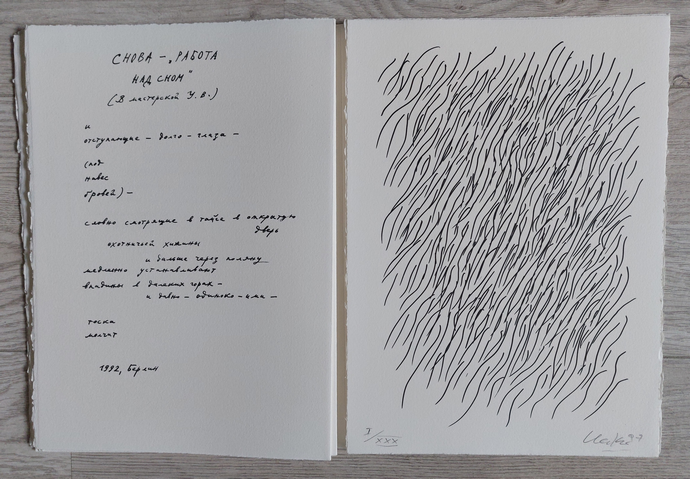 СНОВА — „РАБОТА
НАД СНОМ"
(В мастерской У. В.)
и
отступающие — долго — глаза —
(под
навес
бровей) —
словно смотрящие в тайге в открытую
дверь
охотничьей хижины
и дальше через поляну
медленно устанавливают
впадины в далёких горах —
и давно — одиноко —
тоска
молчит
1992, Берлин
I/XXX
97